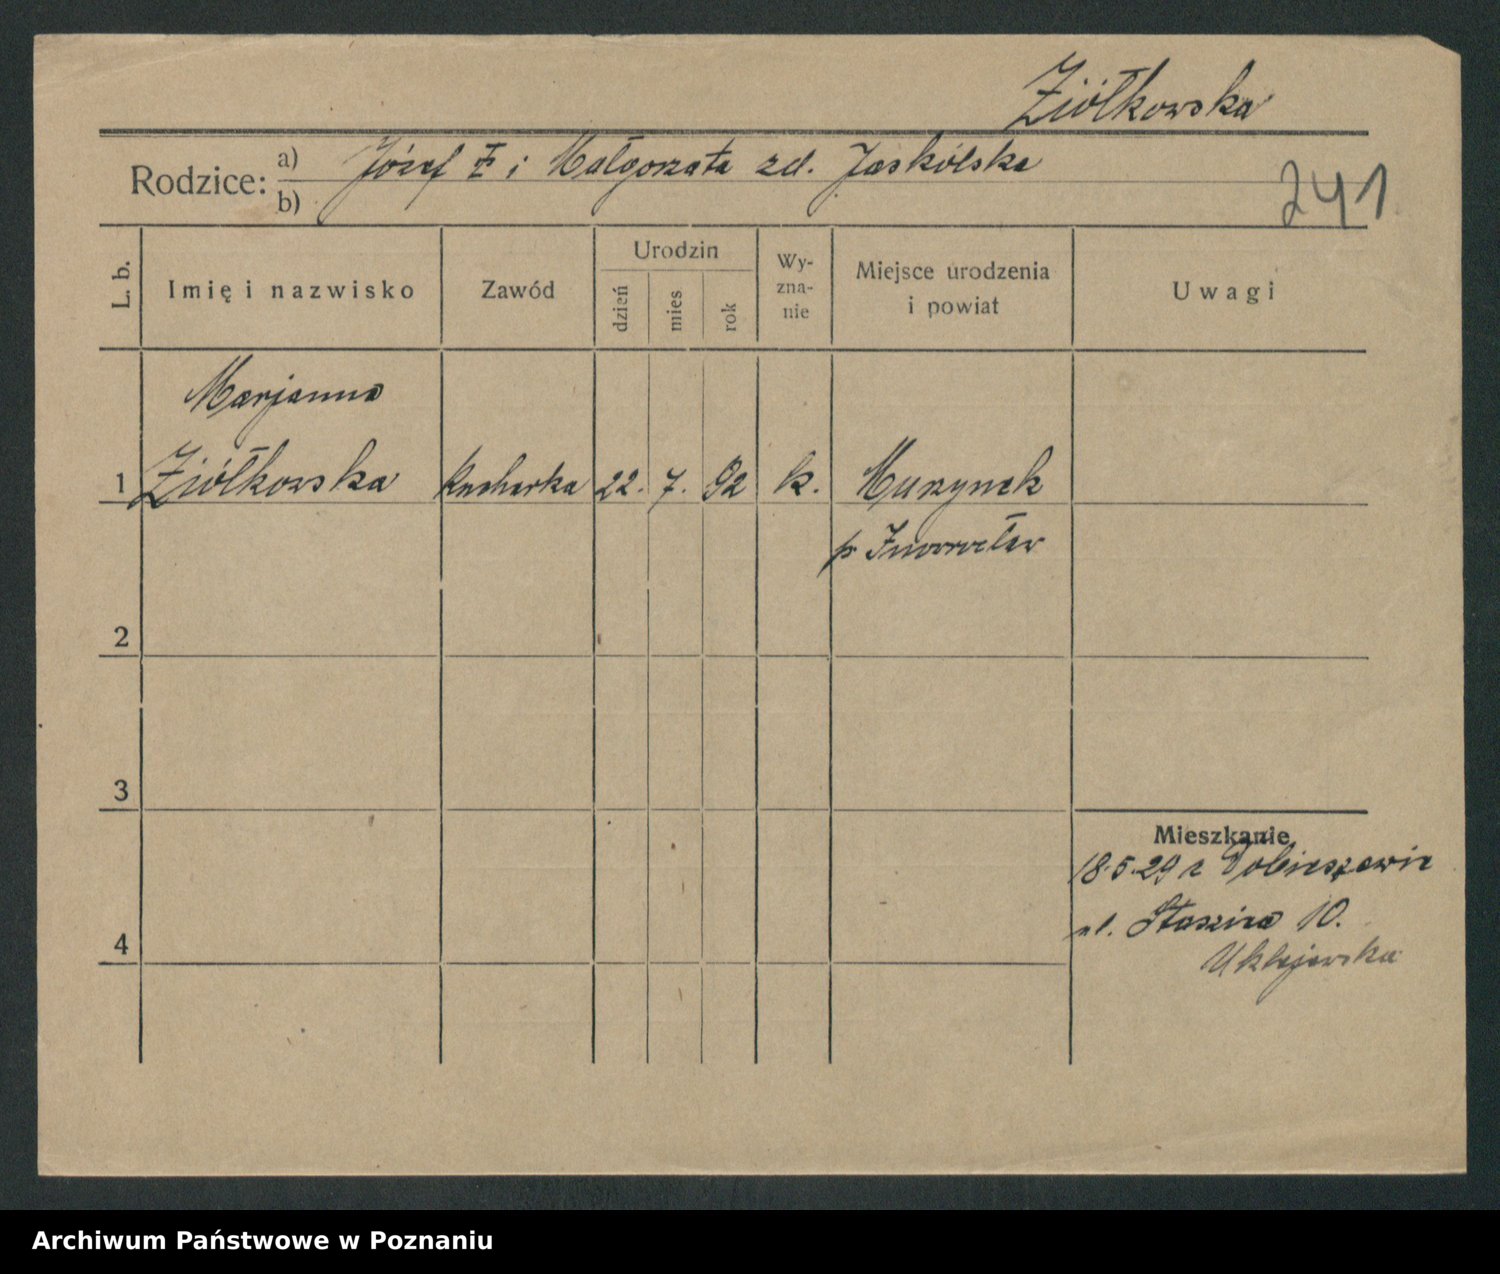 Ziółkowska
Rodzice: a) Józef Z i Małgorzata zd. Jaskólska
b)
241
L. b.
Imię i nazwisko
Zawód
Urodzin
dzień
mies
rok
Wy-
zna-
nie
Miejsce urodzenia
i powiat
Uwagi
Marjanna
1 Ziółkowska kucharka 22. 7. 92 k. Murzynek
p Inowrocław
2
3
Mieszkanie
18.5.29 z
ul. Staszica 10.
4
Archiwum Państwowe w Poznaniu